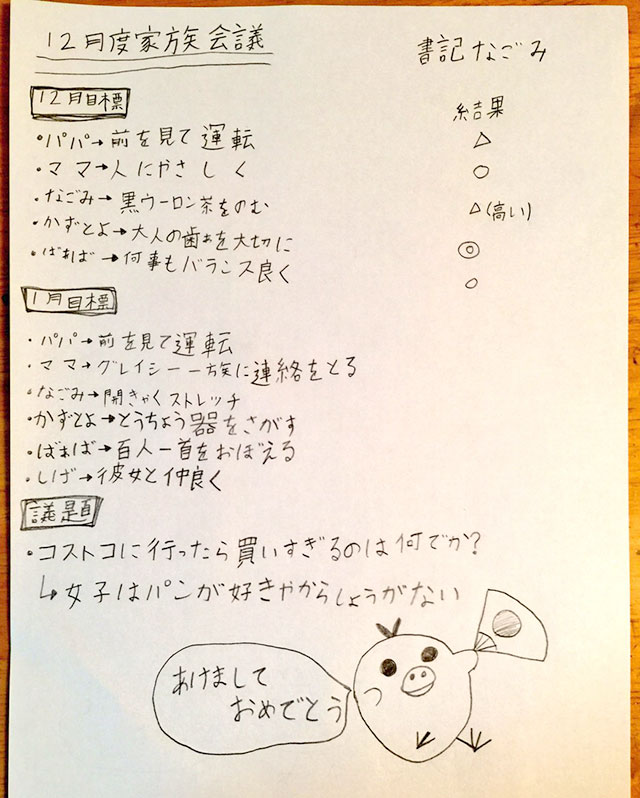 12月度家族会議
書記なごみ
12月目標
結果
・パパ→前を見て運転 △
・ママ→人にやさしく ○
・なごみ→黒ウーロン茶をのむ △(高い)
・かずとよ→大人の歯を大切に ◎
・ばぁば→何事もバランス良く ○
1月目標
・パパ→前を見て運転
・ママ→グレイシー一族に連絡をとる
・なごみ→開きゃくストレッチ
・かずとよ→とうちょう器をさがす
・ばぁば→百人一首をおぼえる
・しげ→彼女と仲良く
議題
・コストコに行ったら買いすぎるのは何でか?
↳女子はパンが好きやからしょうがない
あけまして
おめでとう